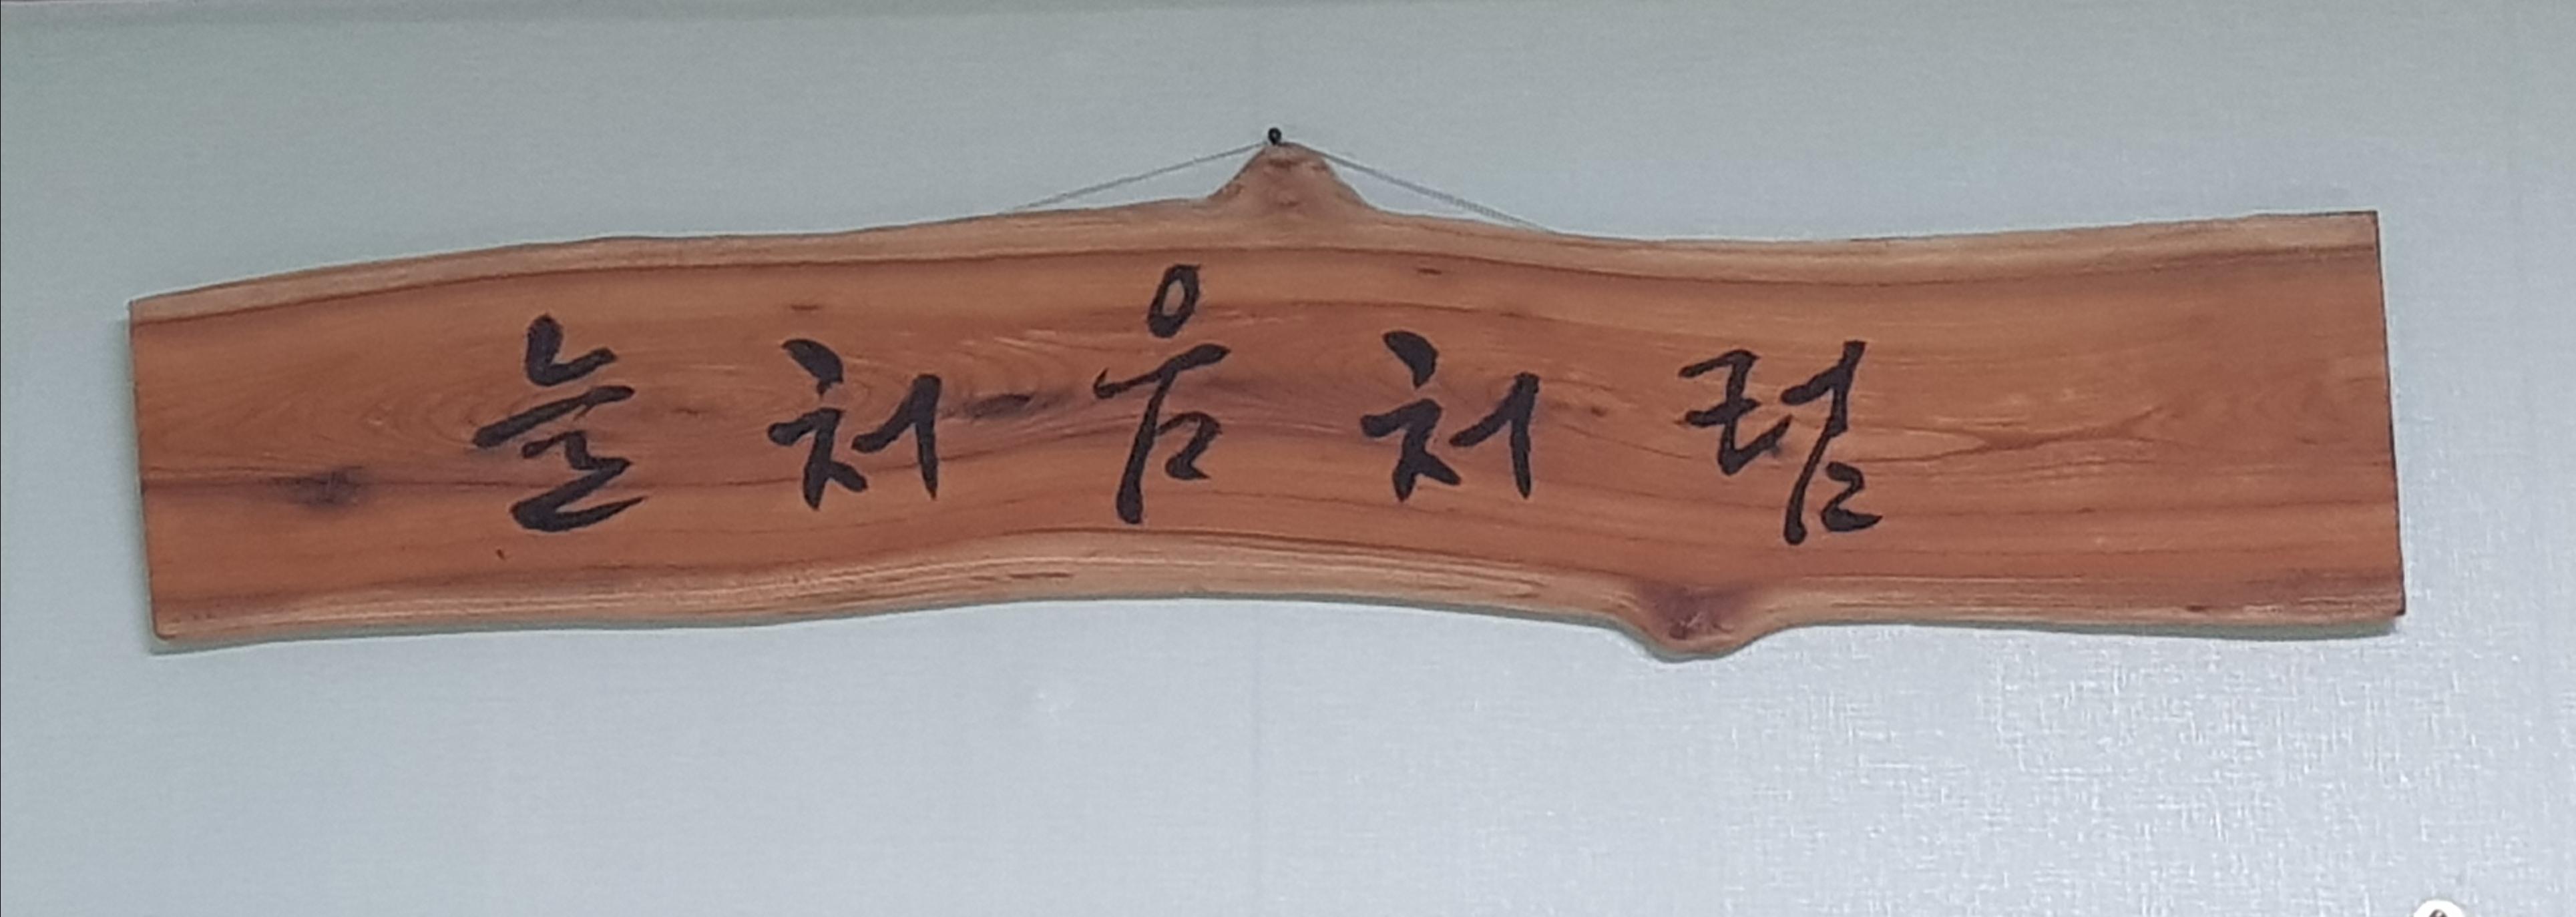 늘 처 음 처 럼